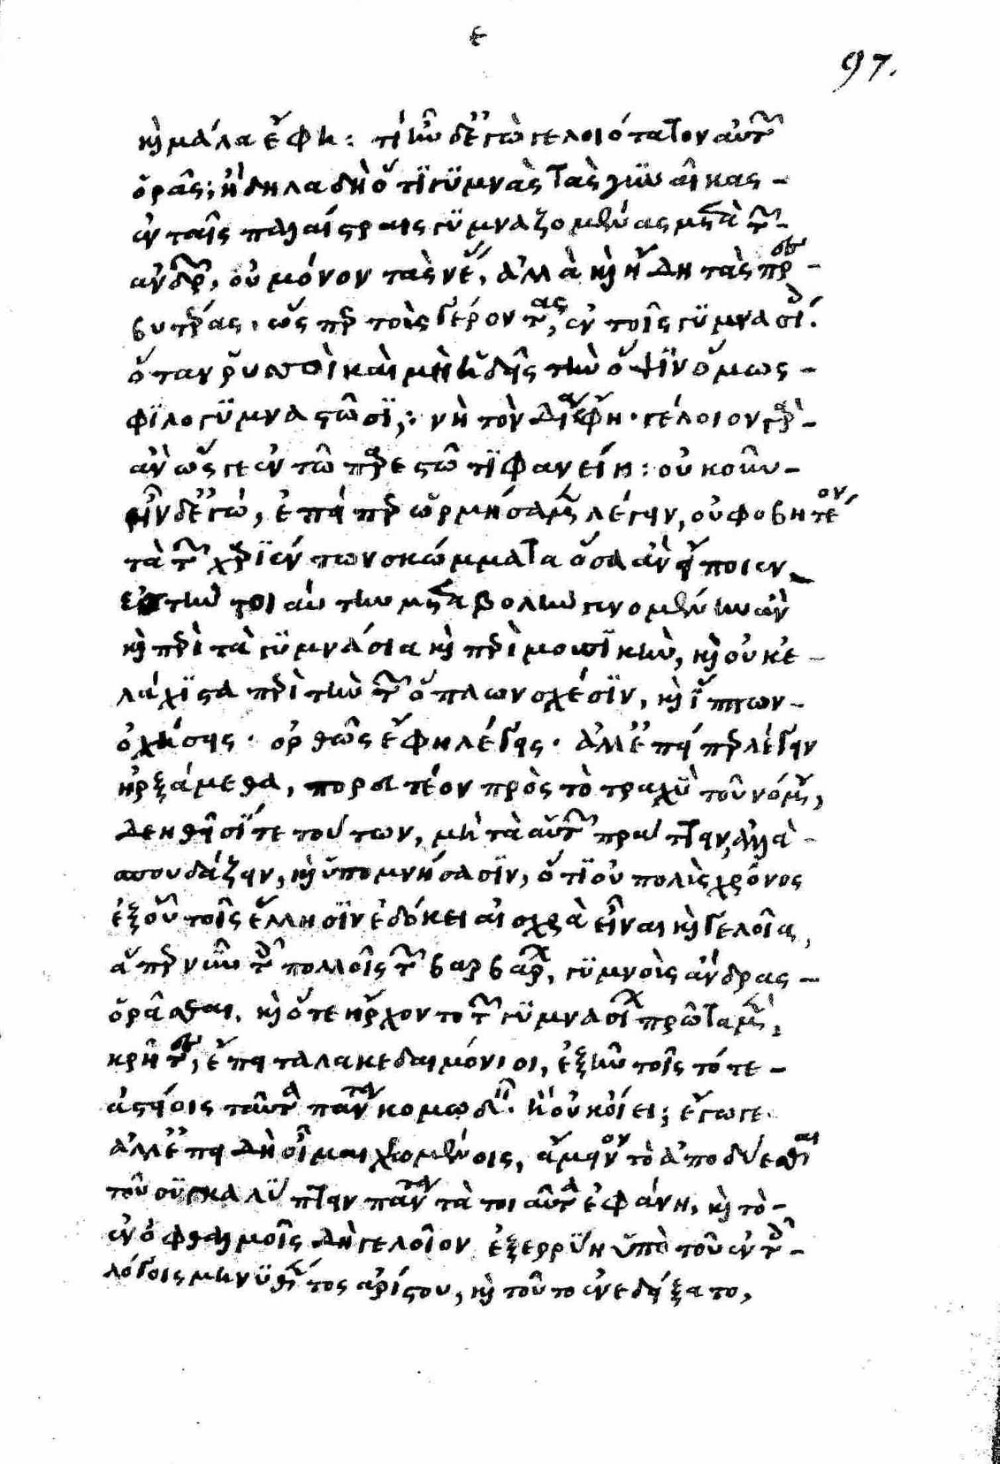 ε
97.
καὶ μάλα ἔφη: τί ἦν δ' ἐγὼ γελοιότατον αὐτῶν
ὁρᾶς; ἢ δηλαδὴ ὅτι γυμνὰς τὰς γυναῖκας
ἐν ταῖς παλαίστραις γυμναζομένας μετὰ τῶν
ἀνδρῶν, οὐ μόνον τὰς νέας, ἀλλὰ καὶ ἤδη τὰς πρεσ
βυτέρας. ὥσπερ τοὺς γέροντας, ἐν τοῖς γυμνασίοις.
ὅταν ῥυσοὶ καὶ μὴ ἡδεῖς τὴν ὄψιν ὅμως
φιλογυμναστῶσιν: νὴ τὸν Δία ἔφη. γελοῖον γὰρ
ἂν ὥς γε ἐν τῷ παρεστῶτι φανείη: οὐκοῦν
ἦν δ' ἐγώ, ἐπείπερ ὡρμήσαμεν λέγειν, οὐ φοβητέον
τὰ τῶν χαριέντων σκώμματα ὅσα ἂν εἴποιεν
εἰς τὴν τοιαύτην μεταβολὴν γενομένην
καὶ περὶ τὰ γυμνάσια καὶ περὶ μουσικὴν, καὶ οὐκ ἐ
λάχιστα περὶ τὴν τῶν ὅπλων σχέσιν, καὶ ἵππων
ὀχήσεις. ὀρθῶς ἔφη λέγεις. ἀλλ' ἐπείπερ λέγειν
ἠρξάμεθα, πορευτέον πρὸς τὸ τραχὺ τοῦ νόμου,
δεηθεῖσί τε τούτων, μὴ τὰ αὑτῶν πράττειν, ἀλλὰ
σπουδάζειν, καὶ ὑπομνήσασιν, ὅτι οὐ πολὺς χρόνος
ἐξ οὗ τοῖς ἕλλησιν ἐδόκει αἰσχρὰ εἶναι καὶ γελοῖα,
ἅπερ νῦν τοῖς πολλοῖς τῶν βαρβάρων, γυμνοὺς ἄνδρας
ὁρᾶσθαι. καὶ ὅτε ἤρχοντο τῶν γυμνασίων πρῶτα μὲν
κρῆτες, ἔπειτα λακεδαιμόνιοι, ἐξῆν τοῖς τότε
ἀστείοις ταῦτα πάντα κομῳδεῖν. ἢ οὐκ οἴει; ἔγωγε.
ἀλλ' ἐπειδὴ οἶμαι χρωμένοις, ἄμεινον τὸ ἀποδύεσθαι
τοῦ συγκαλύπτειν πάντα τὰ τοιαῦτα ἐφάνη, καὶ τὸ
ἐν ὀφθαλμοῖς δὴ γελοῖον ἐξερρύη ὑπὸ τοῦ ἐν τοῖς
λόγοις μηνυθέντος ἀρίστου, καὶ τοῦτο ἐνεδείξατο,